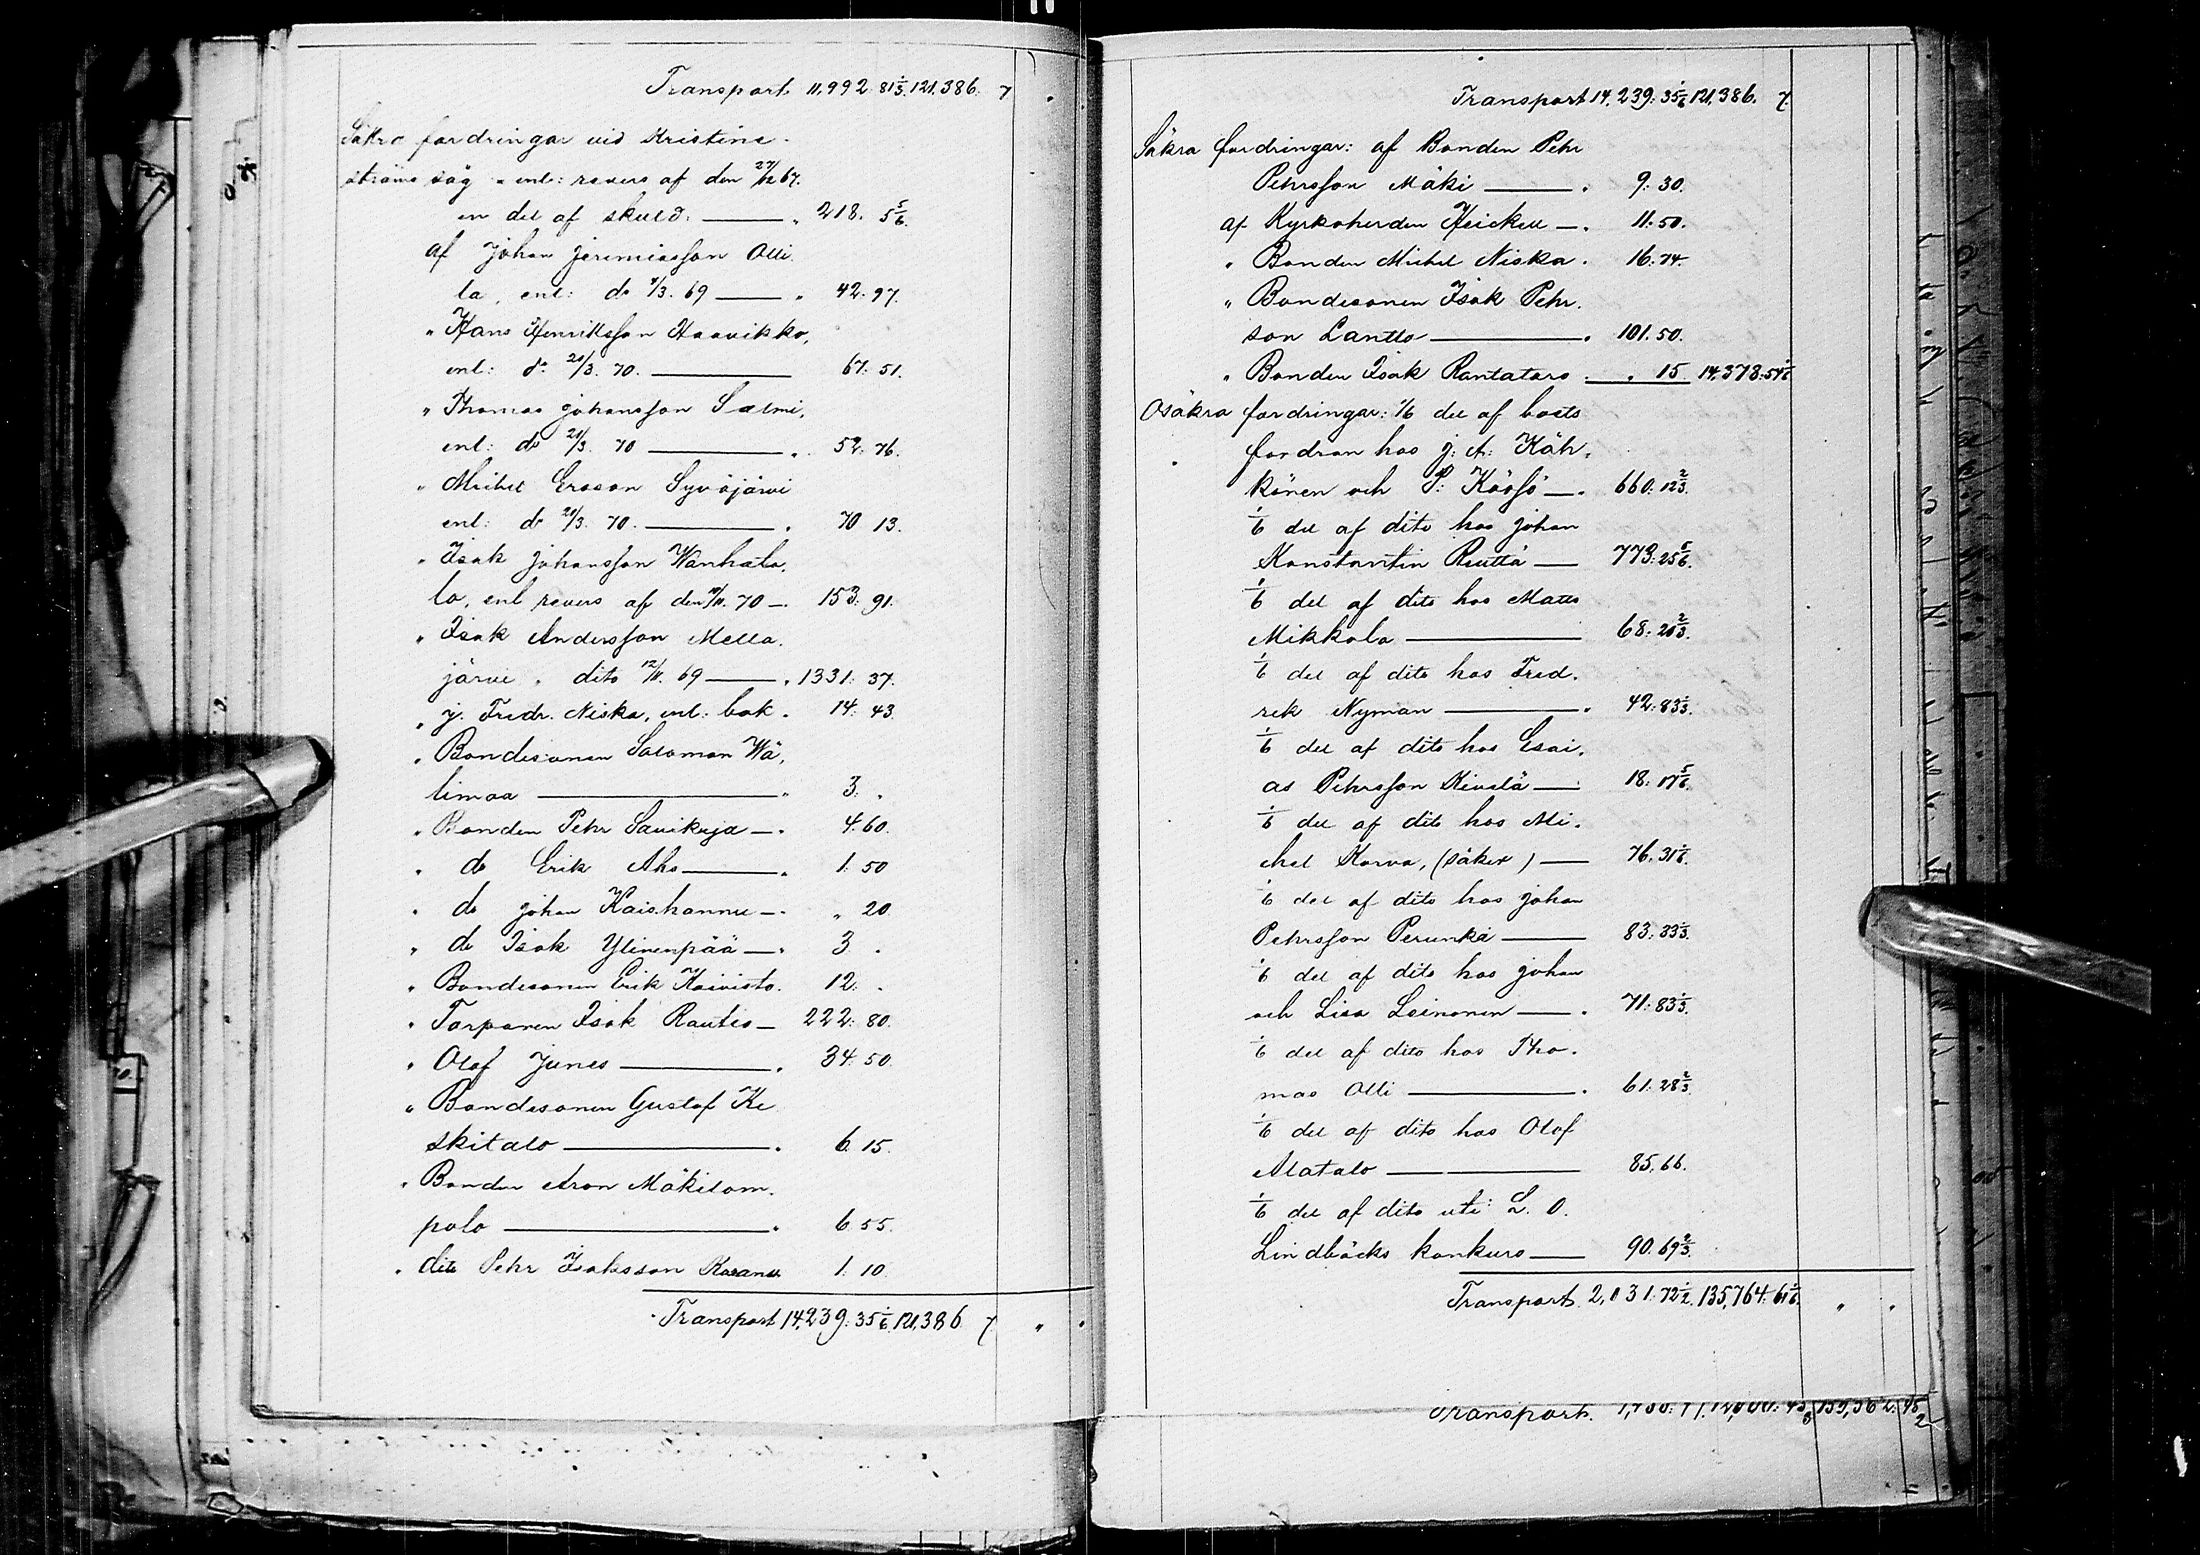 Transport 11,992. 81 1/3. 121,386. 7
Säkra fordringar vid Kristine-
ströms såg enl: revers af den 27/12 67.
en del af skuld. — 218. 5 5/6.
af Johan Jeremiasson Olli-
la, enl: do /3. 69 — 42. 97.
" Hans Henriksson Haavikko,
enl: do 20/3. 70. — 67. 51.
" Thomas Johansson Salmi,
enl: do 20/3. 70 — 52. 76.
" Michel Ersson Syväjärvi
enl: do 20/3. 70. — 70 13.
" Isak Johansson Wanhata-
lo, enl revers af den /11. 70 — 153. 91.
" Isak Andersson Mella-
järvi " dito 12/11. 69 — 1331: 37.
" J. Fredr. Niska, enl: bok. 14. 43.
" Bondesonen Salomon Wä-
limaa — 3. "
" Bonden Pehr Savikuja — 4. 60.
" do Erik Aho — 1. 50
" do Johan Kaishannu — " 20
" do Isak Ylinenpää — 3 "
" Bondesonen Erik Koivisto. 12. "
" Torparen Isak Rautio — 222. 80.
" Olof Junes — 34. 50.
" Bondesonen Gustaf Ke
skitalo — 6. 15.
" Bonden Aron Mäkitom-
polo — 6. 55.
" dito Pehr Isaksson 1. 10
Transport 14,239: 35 1/6. 121,386 7 " "
Transport 14,239: 35 1/6 121,386. 7.
Säkra fordringar: af Bonden Pehr
Pehrsson Mäki — 9. 30.
af Kyrkoherden Heickell — 11: 50.
" Bonden Michel Niska. 16. 74.
" Bondesonen Isak Pehr-
son Lantto — 101. 50.
" Bonden Isak Rantataro — " 15 14,378: 54 1/6
Osäkra fordringar: 1/6 del af bosts
fordran hos J: A: Käh-
könen och P: — 660: 12 2/3.
1/6 del af dito hos Johan
Konstantin — 773: 25 5/6.
1/6 del af dito hos Matts
Mikkola — 68: 20 2/3.
1/6 del af dito hos Fred-
rik Nyman — 42: 83 1/3.
1/6 del af dito hos Esai-
as Pehrsson Kivelä — 18. 17 5/6.
1/6 del af dito hos Mi-
chel Korva, (säker) — 76. 31 1/6.
1/6 del af dito hos Johan
Pehrsson Perunka — 83. 33 1/3.
1/6 del af dito hos Johan
och Lisa Leinonen — 71: 83 1/3.
1/6 del af dito hos Tho-
mas Olli — 61: 28 2/3.
1/6 del af dito hos Olof
Alatalo — 85, 66.
1/6 del af dito uti L. O.
Lindbäcks konkurs — 90. 69 2/3.
Transport. 2,031: 72 1/2. 135,764. 61 1/6. " "
Transport.